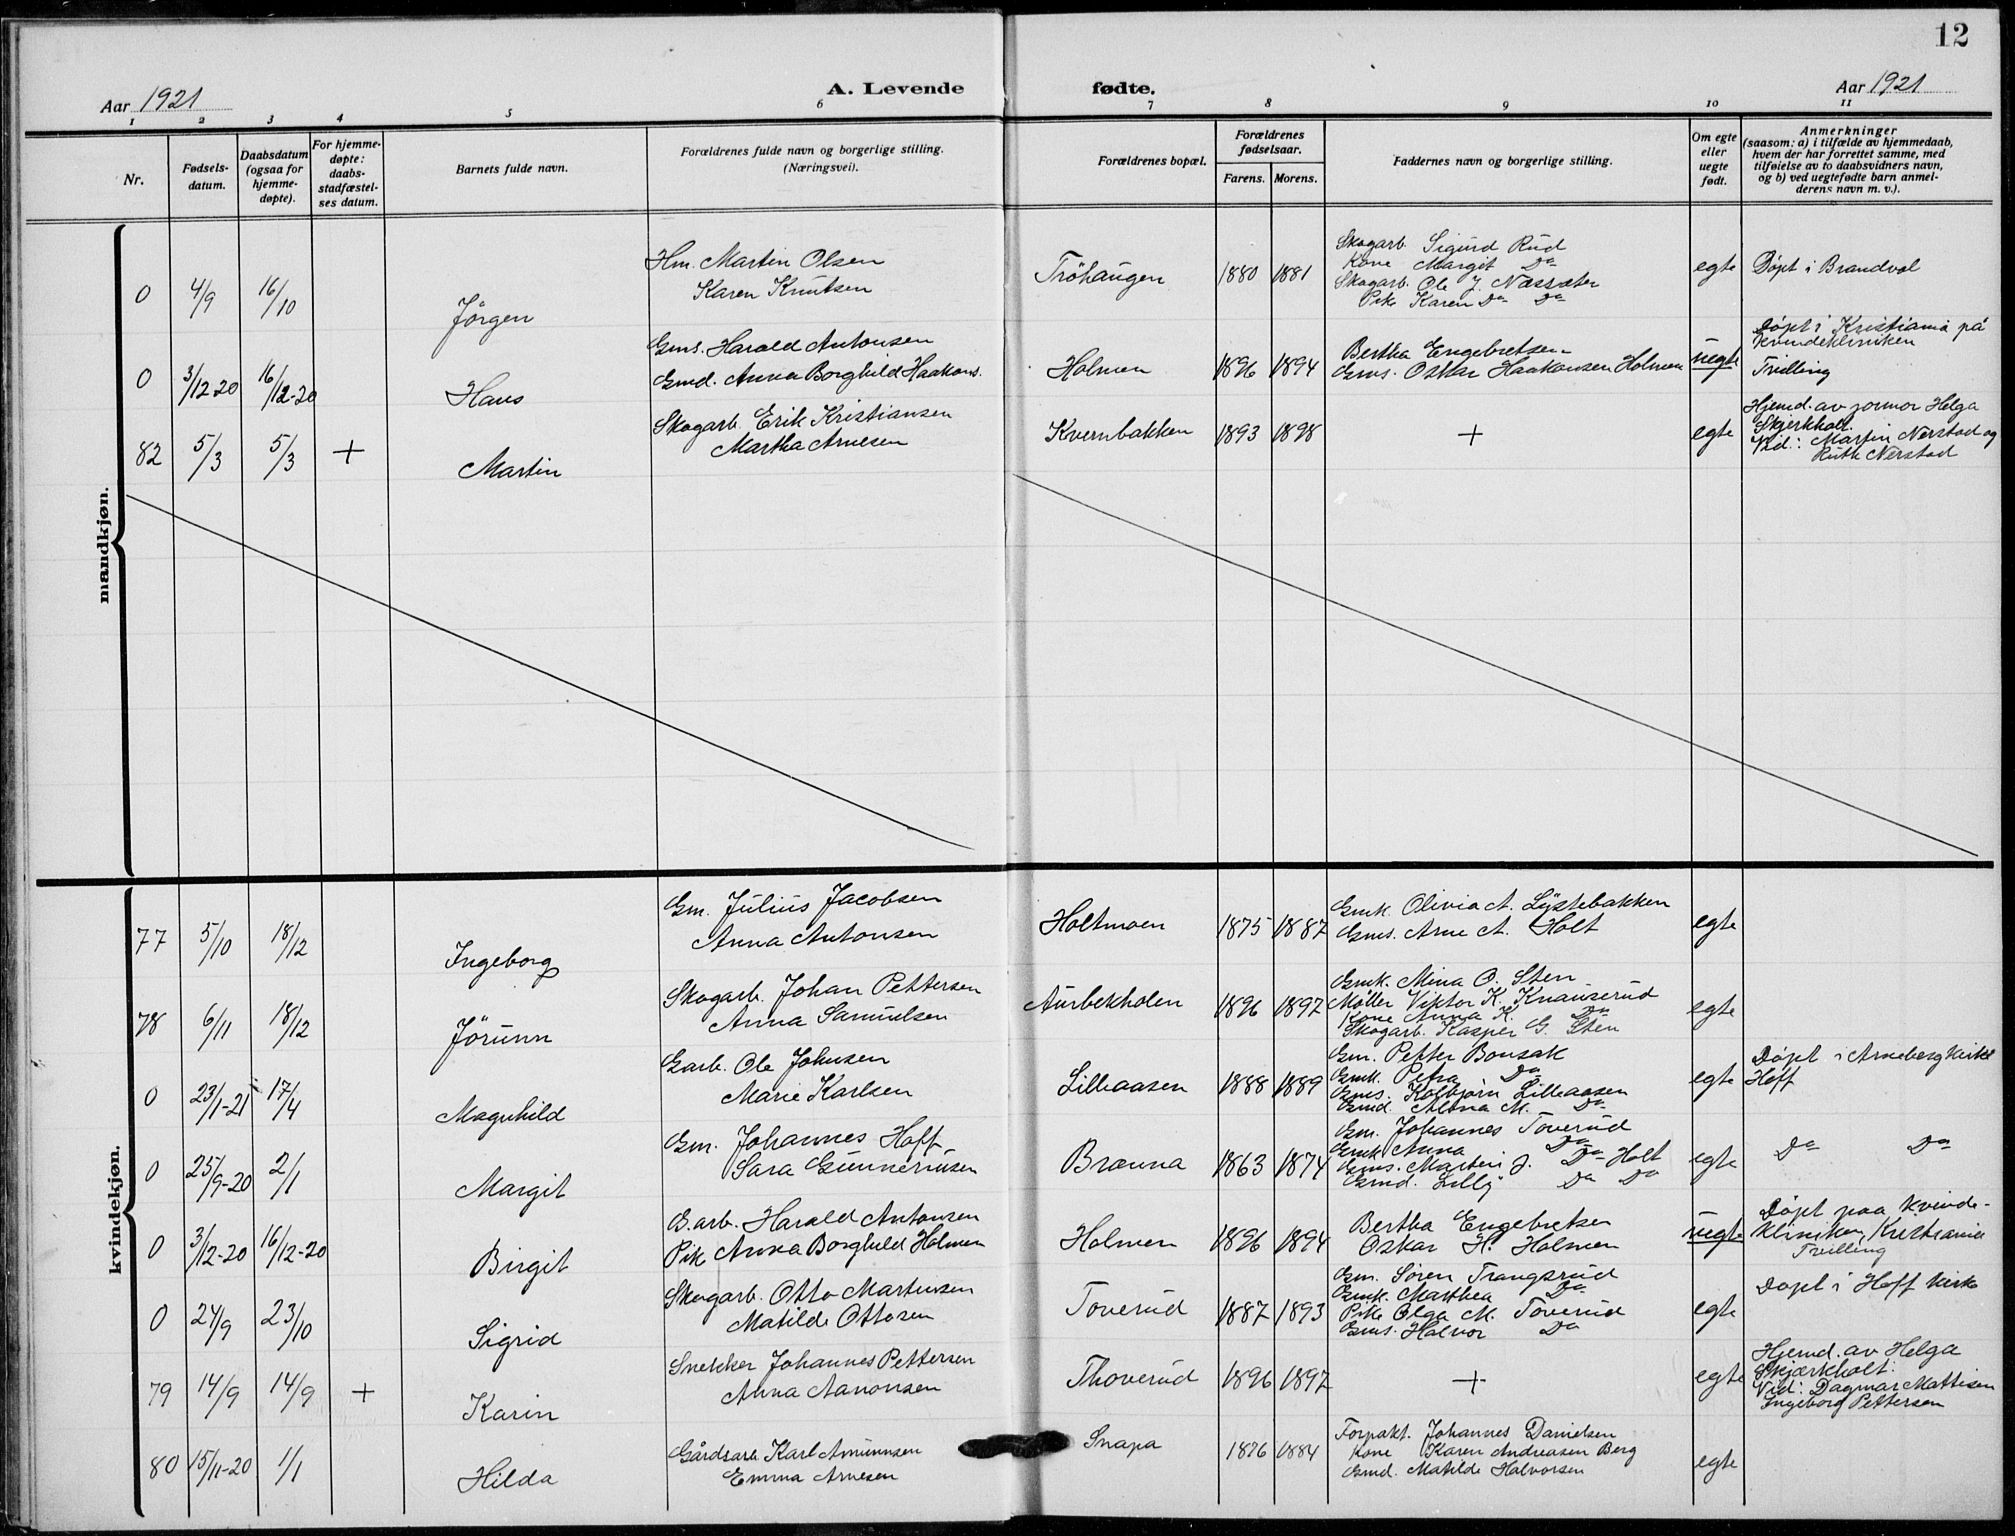 12
Aar 1921
A. Levende fødte.
Aar 1921
1 2 3 4 5 6 7 8 9 10 11
Nr.
Fødsels-
datum.
Daabsdatum
(ogsaa for
hjemme-
døpte).
For hjemme-
døpte:
daabs-
stadfæstel-
ses datum.
Barnets fulde navn.
Forældrenes fulde navn og borgerlige stilling.
(Næringsvei).
Forældrenes bopæl.
Forældrenes
fødselsaar.
Farens. Morens.
Faddernes navn og borgerlige stilling.
Om egte
eller
uegte
født.
Anmerkninger
(saasom: a) i tilfælde av hjemmedaab,
hvem der har forrettet samme, med
tilføielse av to daabsvidners navn,
og b) ved uegtefødte barn anmel-
derens navn m. v.).
mandkjøn.
0 4/9 16/10 Jörgen
Hm. Martin Olsen
Karen Knutsen
Tröhaugen 1880 1881
Skogarb. Sigurd Rud
Kone Margit Do
Skogarb. Ole J. Næssæter
Pike Karen Do Do
egte
Döpt i Brandval
0 3/12-20 16/12-20 Hans
Gms. Harald Antonsen
Gmd. Anna Borghild Haakons.
Holmen 1896 1894
Bertha Engebretsen
Gms. Oskar Haakonsen Holmen
uegte
Döpt i Kristiania på
Kvindekliniken
Tvilling
82 5/3 5/3 + Martin
Skogarb. Erik Kristiansen
Martha Arnesen
Kvernbakken 1893 1898
+
egte
Hjemd. av jormor Helga
Skjerkholt.
Vid: Martin Nerstad og
Ruth Nerstad
kvindekjøn.
77 5/10 18/12 Ingeborg
Gm. Julius Jacobsen
Anna Antonsen
Holtmoen 1875 1887
Gmk. Olivia A. Lystebakken
Gms. Arne A. Holt
egte
78 6/11 18/12 Jörunn
Skogarb. Johan Pettersen
Anna Samuelsen
Aurbekholen 1896 1897
Gmk. Mina O. Sten
Møller Viktor K. Knauserud
Kone Anna K. Do
Skogarb. Kasper G. Sten
egte
0 23/1-21 17/4 Magnhild
Garb. Ole Johnsen
Marie Karlsen
Lilleaasen 1888 1889
Gm. Petter Bonsak
Gmk. Petra Do
Gms. Kolbjørn Lilleaasen
Gmd. Alma M. Do
egte
Döpt i Arneberg kirke
Hoff
0 25/9-20 2/1 Margit
Gm. Johannes Hoff
Sara Gunneriusen
Brænna 1863 1874
Gm. Johannes Toverud
Gmk Anna Do
Gms. Martin J. Do Holt
Gmd. Lilly Do Do
egte
Do Do
0 3/12-20 16/12-20 Birgit
G.arb. Harald Antonsen
Pik Anna Borghild Holmen
Holmen 1896 1894
Bertha Engebretsen
Oskar H. Holmen
uegte
Döpt paa Kvinde-
kliniken, Kristiania
Tvilling
0 24/9 23/10 Sigrid
Skogarb. Otto Martinsen
Matilde Ottosen
Toverud 1887 1893
Gm. Sören Trangsrud
Gmk. Marthea Do
Pike Olga M. Toverud
Gms. Halvor Do
egte
Döpt i Hoff kirke
79 14/9 14/9 + Karin
Snekker Johannes Pettersen
Anna Aanonsen
Thoverud 1896 1897
+
egte
Hjemd. av Helga
Skjærkholt.
Vid: Dagmar Mattisen
Ingeborg Pettersen
80 15/11-20 1/1 Hilda
Gårdsarb. Karl Amunnsen
Emma Arnesen
Snapa 1876 1884
Forpakt. Johannes Danielsen
Kone Karen Andreasen Berg
Gmd. Matilde Halvorsen
egte